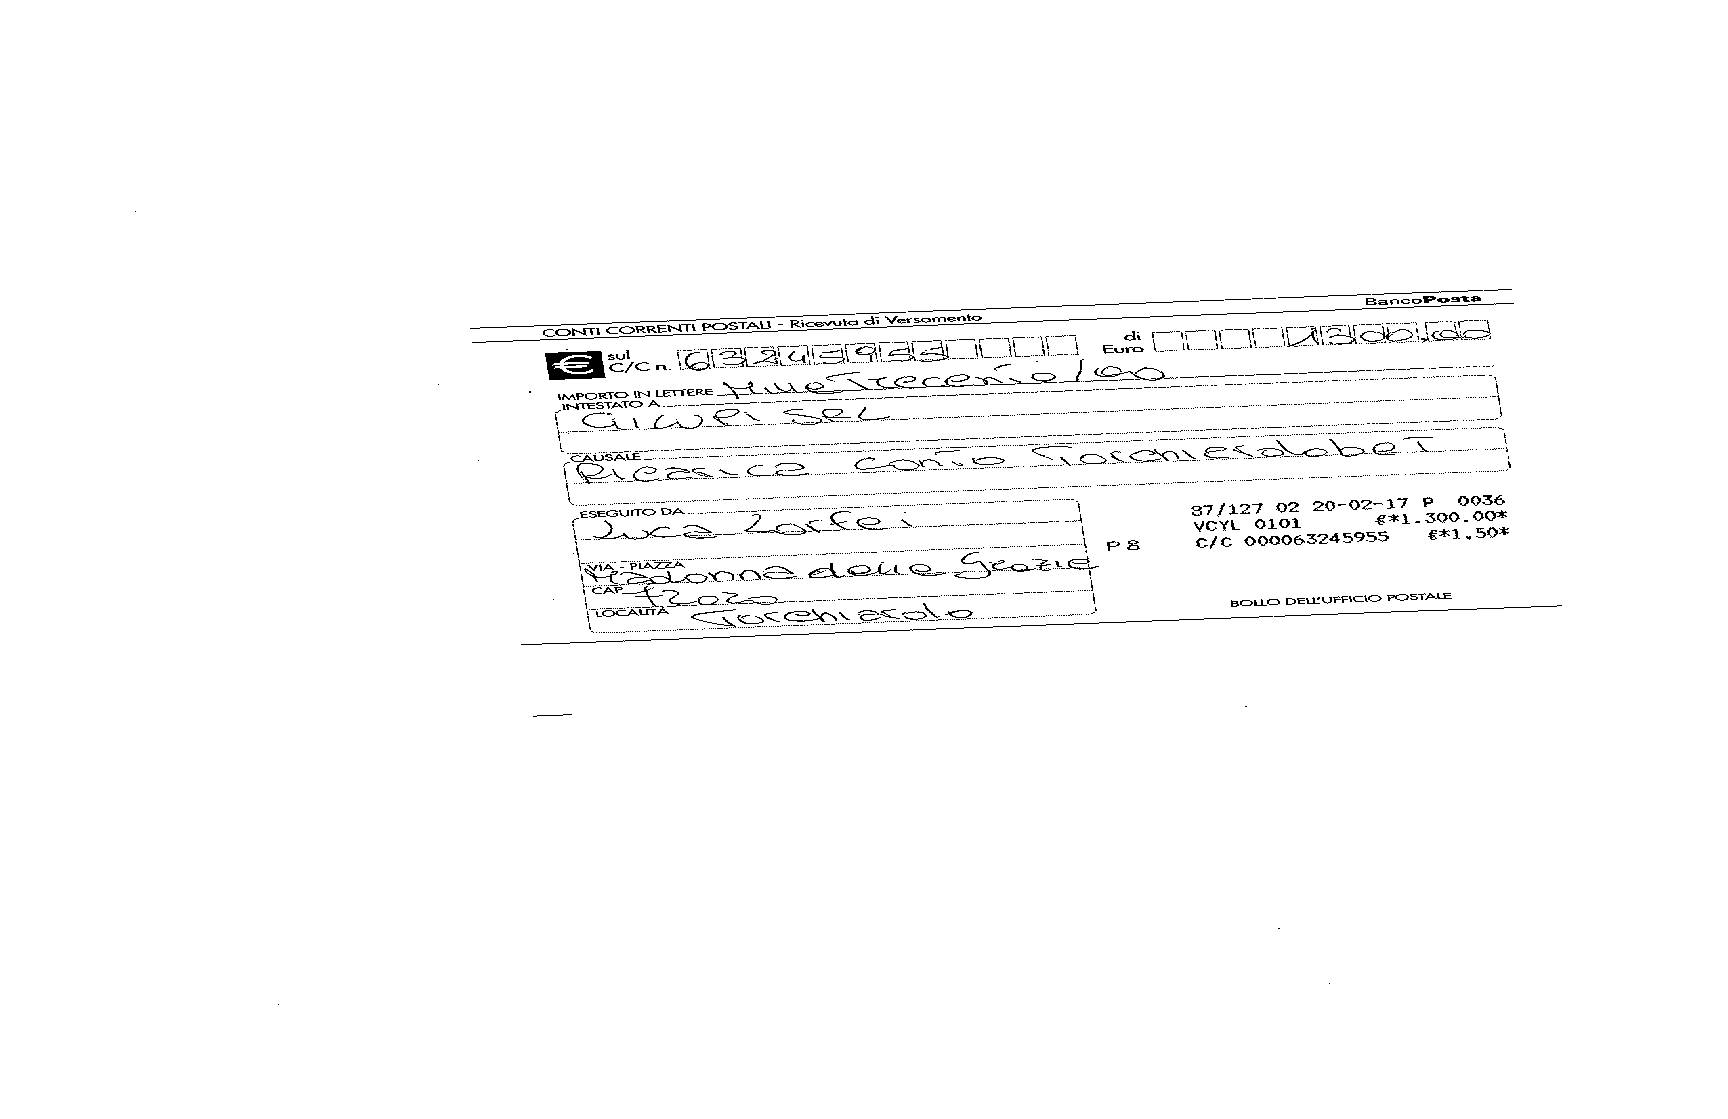 BancoPosta
CONTI CORRENTI POSTALI - Ricevuta di Versamento
€ sul C/C n. 63245955 di Euro 1300,00
IMPORTO IN LETTERE MilleTrecento/00
INTESTATO A
CAUSALE
Ricarica conto TorchiarolobeT
ESEGUITO DA
Luca
VIA - PIAZZA
Madonna delle Grazie
CAP 72020
LOCALITÀ Torchiarolo
87/127 02 20-02-17 P 0036
VCYL 0101 €*1.300.00*
P 8 C/C 000063245955 €*1.50*
BOLLO DELL'UFFICIO POSTALE